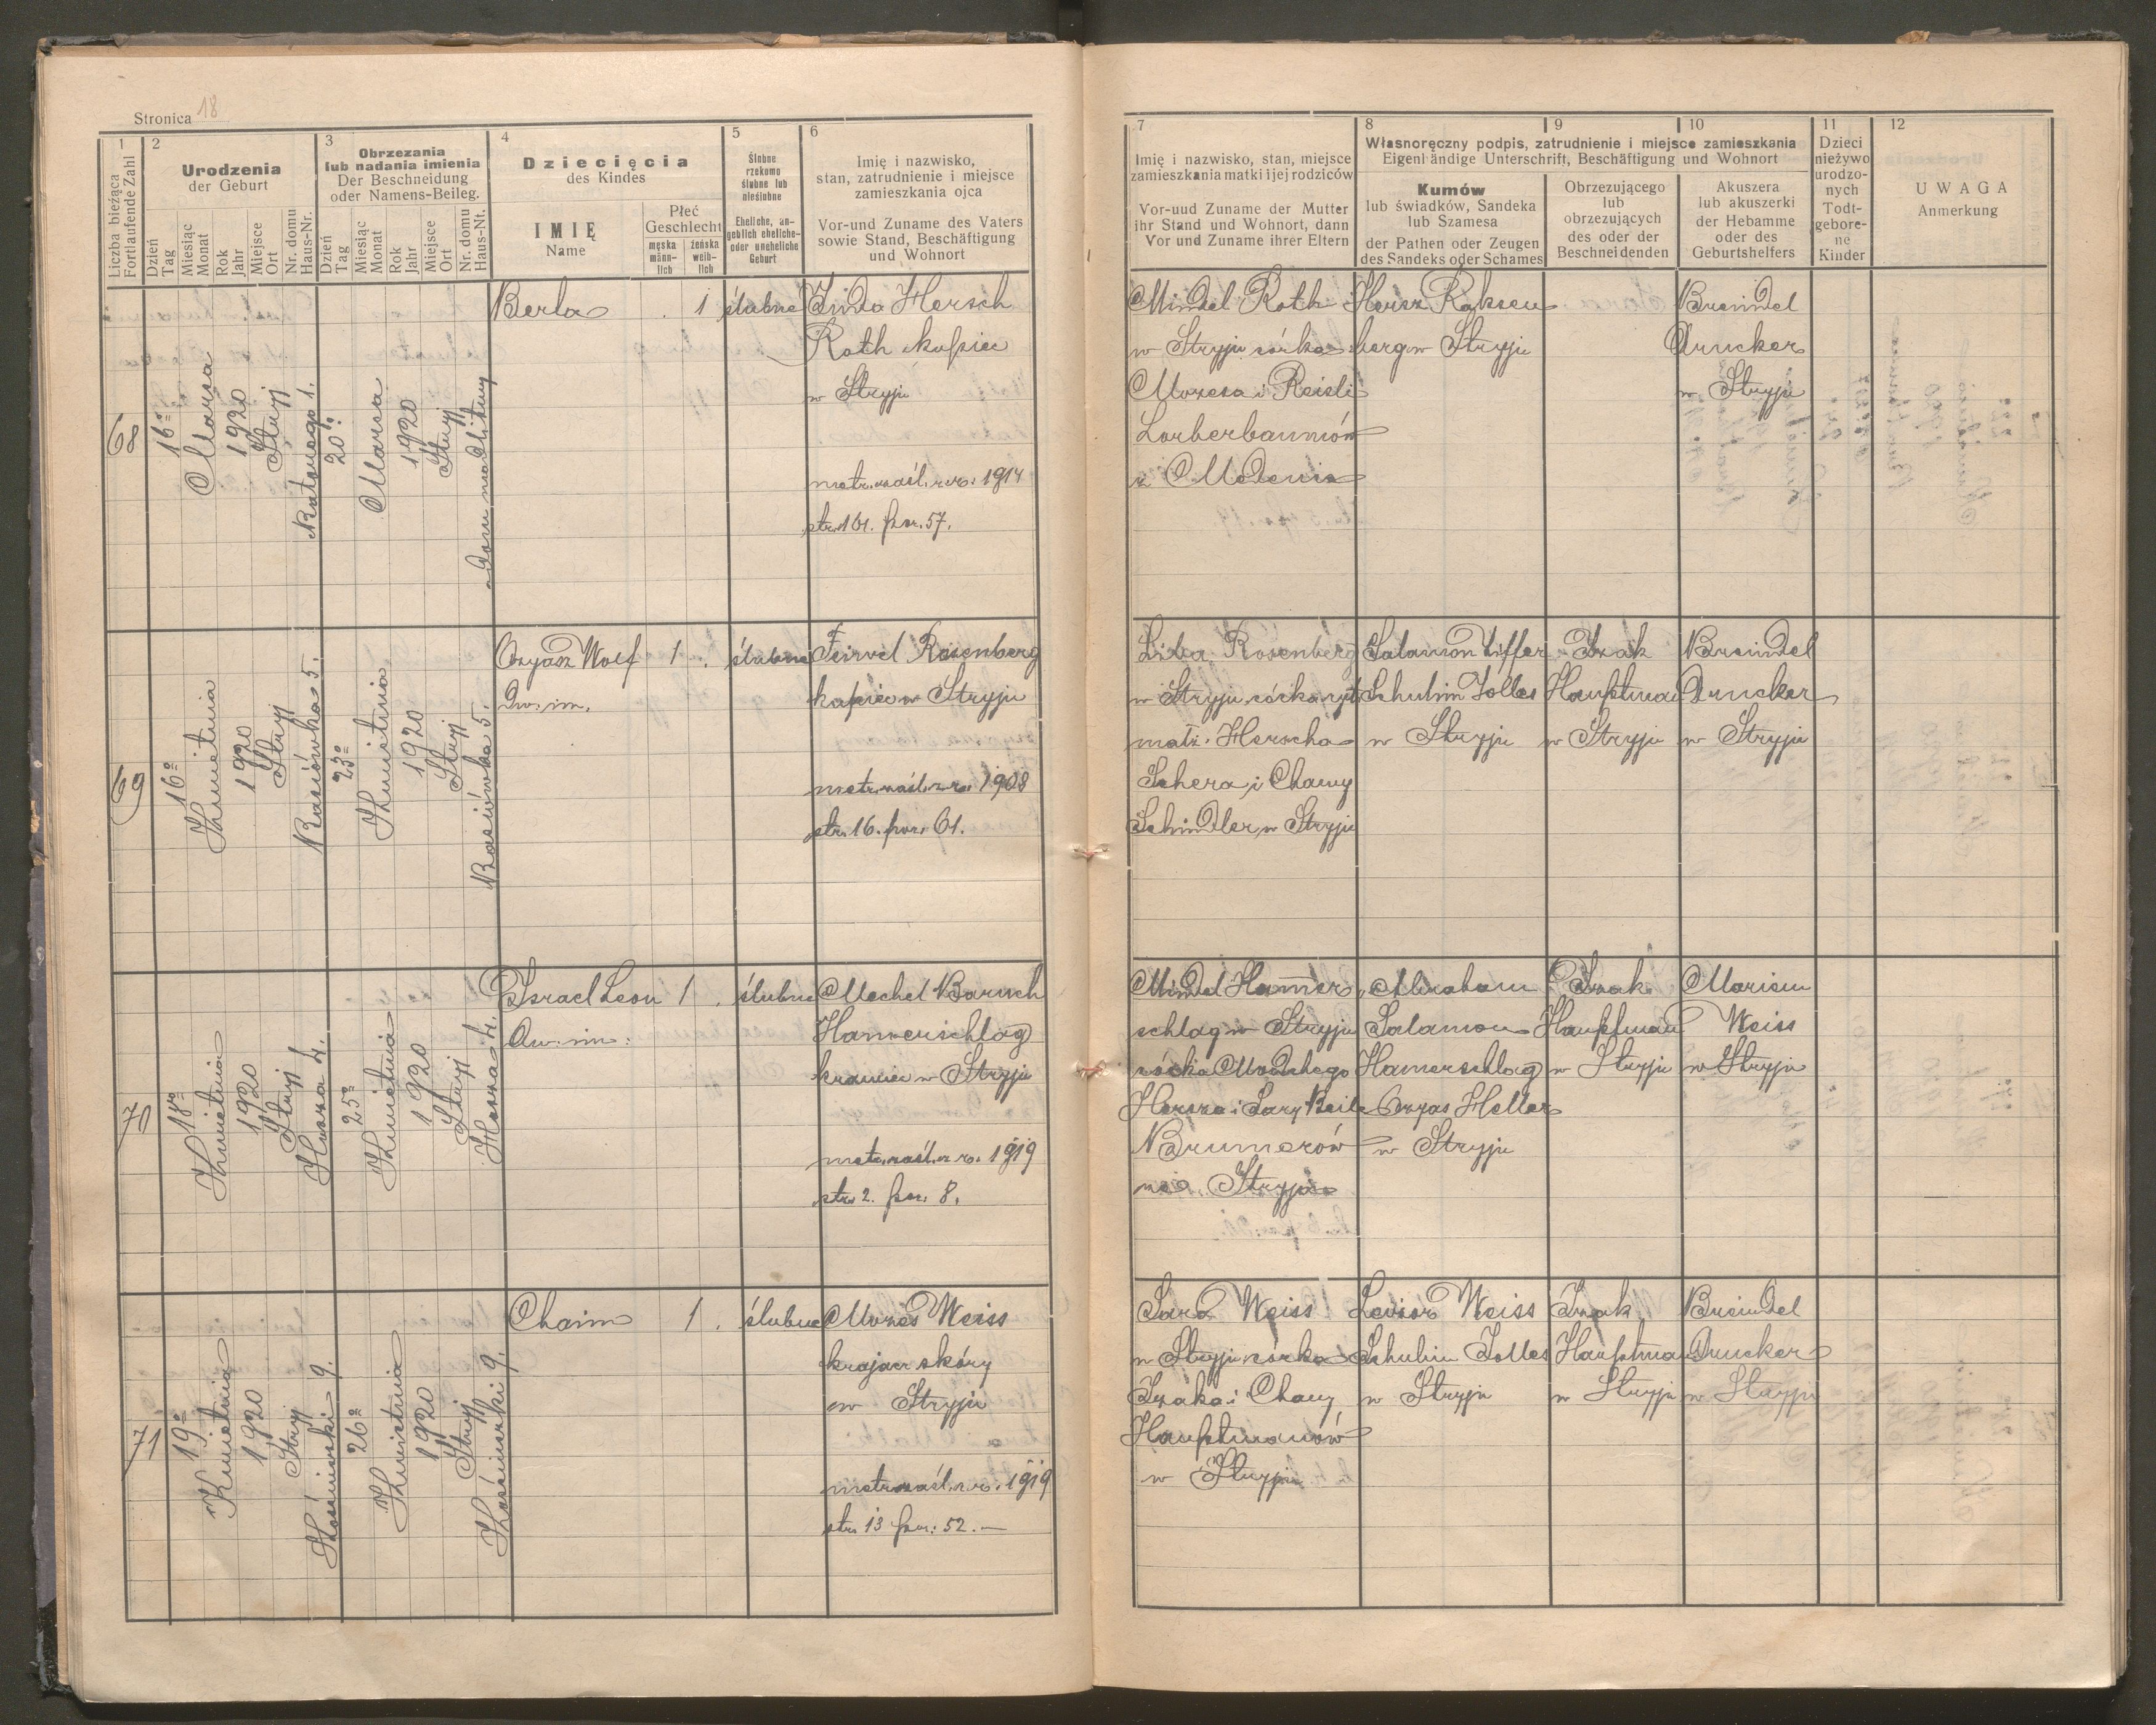 Stronica 18
1
Liczba bieżąca
Fortlaufende Zahl
2
Urodzenia
der Geburt
Dzień
Tag
Miesiąc
Monat
Rok
Jahr
Miejsce
Ort
Nr. domu
Haus-Nr.
3
Obrzezania
lub nadania imienia
Der Beschneidung
oder Namens-Beileg.
Dzień
Tag
Miesiąc
Monat
Rok
Jahr
Miejsce
Ort
Nr. domu
Haus-Nt.
4
Dziecięcia
des Kindes
IMIĘ
Name
Płeć
Geschlecht
męska
männ-
lich
żeńska
weib-
lich
5
Ślubne
rzekomo
ślubne lub
nieślubne
Eheliche, an-
geblich eheliche-
oder uneheliche
Geburt
6
Imię i nazwisko,
stan, zatrudnienie i miejsce
zamieszkania ojca
Vor-und Zuname des Vaters
sowie Stand, Beschäftigung
und Wohnort
7
Imię i nazwisko, stan, miejsce
zamieszkania matki i jej rodziców
Vor-uud Zuname der Mutter
ihr Stand und Wohnort, dann
Vor und Zuname ihrer Eltern
8
9
10
Własnoręczny podpis, zatrudnienie i miejsce zamieszkania
Eigenländige Unterschrift, Beschäftigung und Wohnort
Kumów
lub świadków, Sandeka
lub Szamesa
der Pathen oder Zeugen
des Sandeks oder Schames
Obrzezującego
lub
obrzezujących
des oder der
Beschneidenden
Akuszera
lub akuszerki
der Hebamme
oder des
Geburtshelfers
11
Dzieci
nieżywo
urodzo-
nych
Todt-
gebore-
ne
Kinder
12
UWAGA
Anmerkung
68
16º
Marca
1920
Stryj
Batorego 1.
20º
Marca
1920
Stryj
dom modlitwy
Berta
1
ślubne
Juda Hersch
Roth kupiec
w Stryju
metr. zaśl. z r. 1914
str. 161. poz. 57.
Mindel Roth
w Stryju córka
Mozesa i Reisli
Lorberbaumów
z Modenia
Hersz Roksen
berg w Stryju
Breindel
Drucker
w Stryju
69
16º
Kwietnia
1920
Stryj
Basiówka 5.
23º
Kwietnia
1920
Stryj
Basiówka 5.
Ozyasz Wolf
Dw. im.
1
ślubne
Feiwel Rosenberg
kupiec w Stryju
metr. zaśl. z r. 1908
str. 16. poz. 61.
Liba Rosenberg
w Stryju córka ryt.
małż. Herscha
Schera i Chawy
Schindler w Stryju
Salamon Ziffer
Schulim Jolles
w Stryju
Izak
Hauptman
w Stryju
Breindel
Drucker
w Stryju
70
18º
Kwietnia
1920
Stryj
Hussa 4.
25º
Kwietnia
1920
Stryj
Hussa 4.
Israel Leon
Dw. im.
1
ślubne
Mechel Baruch
Hammerschlag
krawiec w Stryju
metr. zaśl. z r. 1919
str. 2. poz. 8.
Mindel Hamer
schlag w Stryju
córka Mordchego
Hersza i Sary Beile
Brumerów
w Stryju
Abraham
Salamon
Hamerschlag
Ozyas Heller
w Stryju
Izak
Hauptman
w Stryju
Mariem
Weiss
w Stryju
71
19º
Kwietnia
1920
Stryj
Kośnierski 9.
26º
Kwietnia
1920
Stryj
Kośnierski 9.
Chaim
1
ślubne
Mozes Weiss
krajacz skóry
w Stryju
metr. zaśl. z r. 1919
str. 13 poz. 52.
Sara Weiss
w Stryju córka
Izaka i Chany
Hauptmanów
w Stryju
Leiser Weiss
Schulim Jolles
w Stryju
Izak
Hauptman
w Stryju
Breindel
Drucker
w Stryju